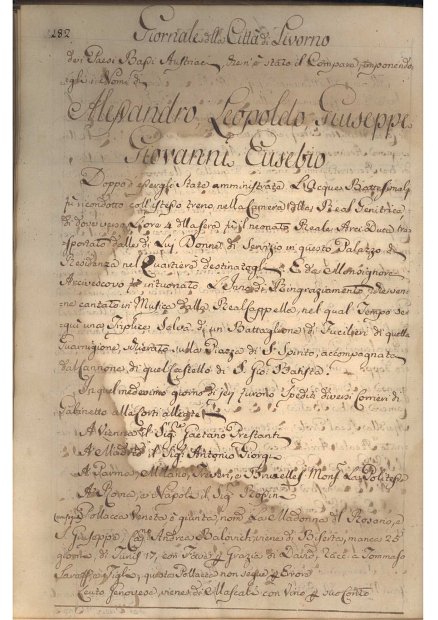 182 Giornale della Città di Livorno
dei Paesi Bassi Austriaci che n'è stato il Compare, imponendo
egli i Nomi di
Alessandro, Leopoldo, Giuseppe
Giovanni Eusebio
Doppo essergli stato amministrata l'Acqua Battesimale
fu ricondotto coll'istesso treno, nella Camera della Real Genitrice
di dove verso l'ore 4 della sera fu il neonato Reale Arciduca tra
sportato dalle di Lui Donne di Servizio in questo Palazzo di
Residenza nel Quartiere destinatogli. E da Monsignore
Arcivescovo fu intuonato l'Inno di Ringraziamento che venne
cantato in Musica dalla Real Cappella, nel qual tempo se-
guì una Triplice Salva di un Battaglione di Fucilieri di questa
Guarnigione, squadrato sulla Piazza di S. Spirito, accompagnata
dal Cannone di quel Castello di S. Gio: Batista.
In quel medesimo giorno di jeri furono spediti diversi Corrieri di
Gabinetto alle Corti
A Vienna il Sig. Gaetano Prestanti
A Madrid il Sig. Antonio Giorgi
A Parma, Milano, e Bruselles Mons.
A Roma, e Napoli il Sig.
Pollacca Veneta è giunta, nom. La Madonna del Rosario, e
S. Giuseppe, Cap. Andrea Balovich, viene di Biserta, manca 25
giorni, di Tunis 17, con Fave, e Grazia di Davide a Tommaso
e Figli, questa Pollacca non segue per Errore
Leuto Genovese, viene di Mascali con Vino per suo Conto